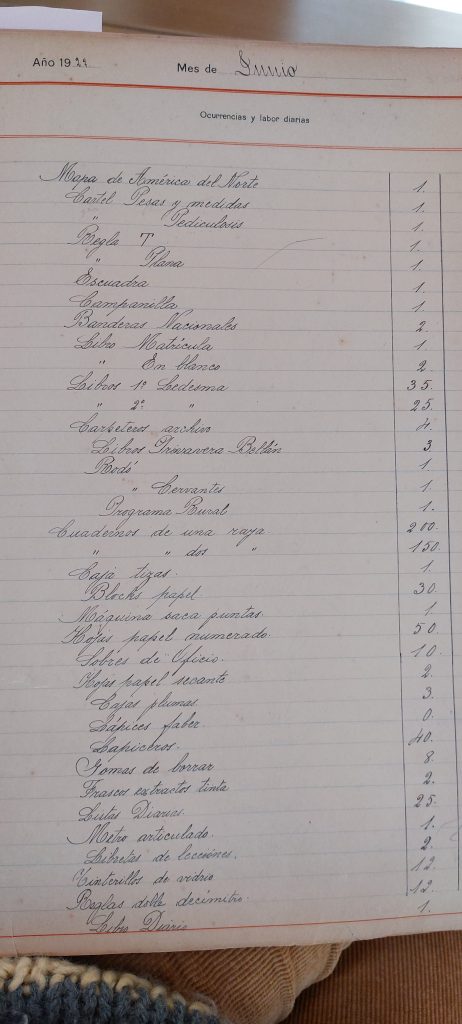 Año 1929 Mes de Junio
Ocurrencias y labor diarias
Mapa de América del Norte 1.
Cartel Pesas y medidas 1.
" Pediculosis 1.
Regla T 1.
" Plana 1.
Escuadra 1.
Campanilla 1.
Banderas Nacionales 2.
Libro Matrícula 1.
" En blanco 2.
Libros 1º Ledesma 35.
" 2º " 25.
Carpetas archivo 4.
Libros Primavera-Bellán 3
Rodó 1.
" Cervantes 1.
Programa Rural 1.
Cuadernos de una raya 200.
" " dos " 150.
Caja tizas. 1.
Blocks papel 30
Máquina saca puntas 1
Hojas papel numerado 50.
Sobres de Oficio 10.
Hojas papel secante 2.
Cajas plumas 3.
Lápices faber 0.
Lapiceros. 40.
Gomas de borrar 8.
Frascos extractos tinta 2.
Listas Diarias 25.
Metro articulado. 1.
Libretas de lecciones. 2.
Tinterillos de vidrio 12.
Reglas doble decímitro. 12.
Libro Diario 1.